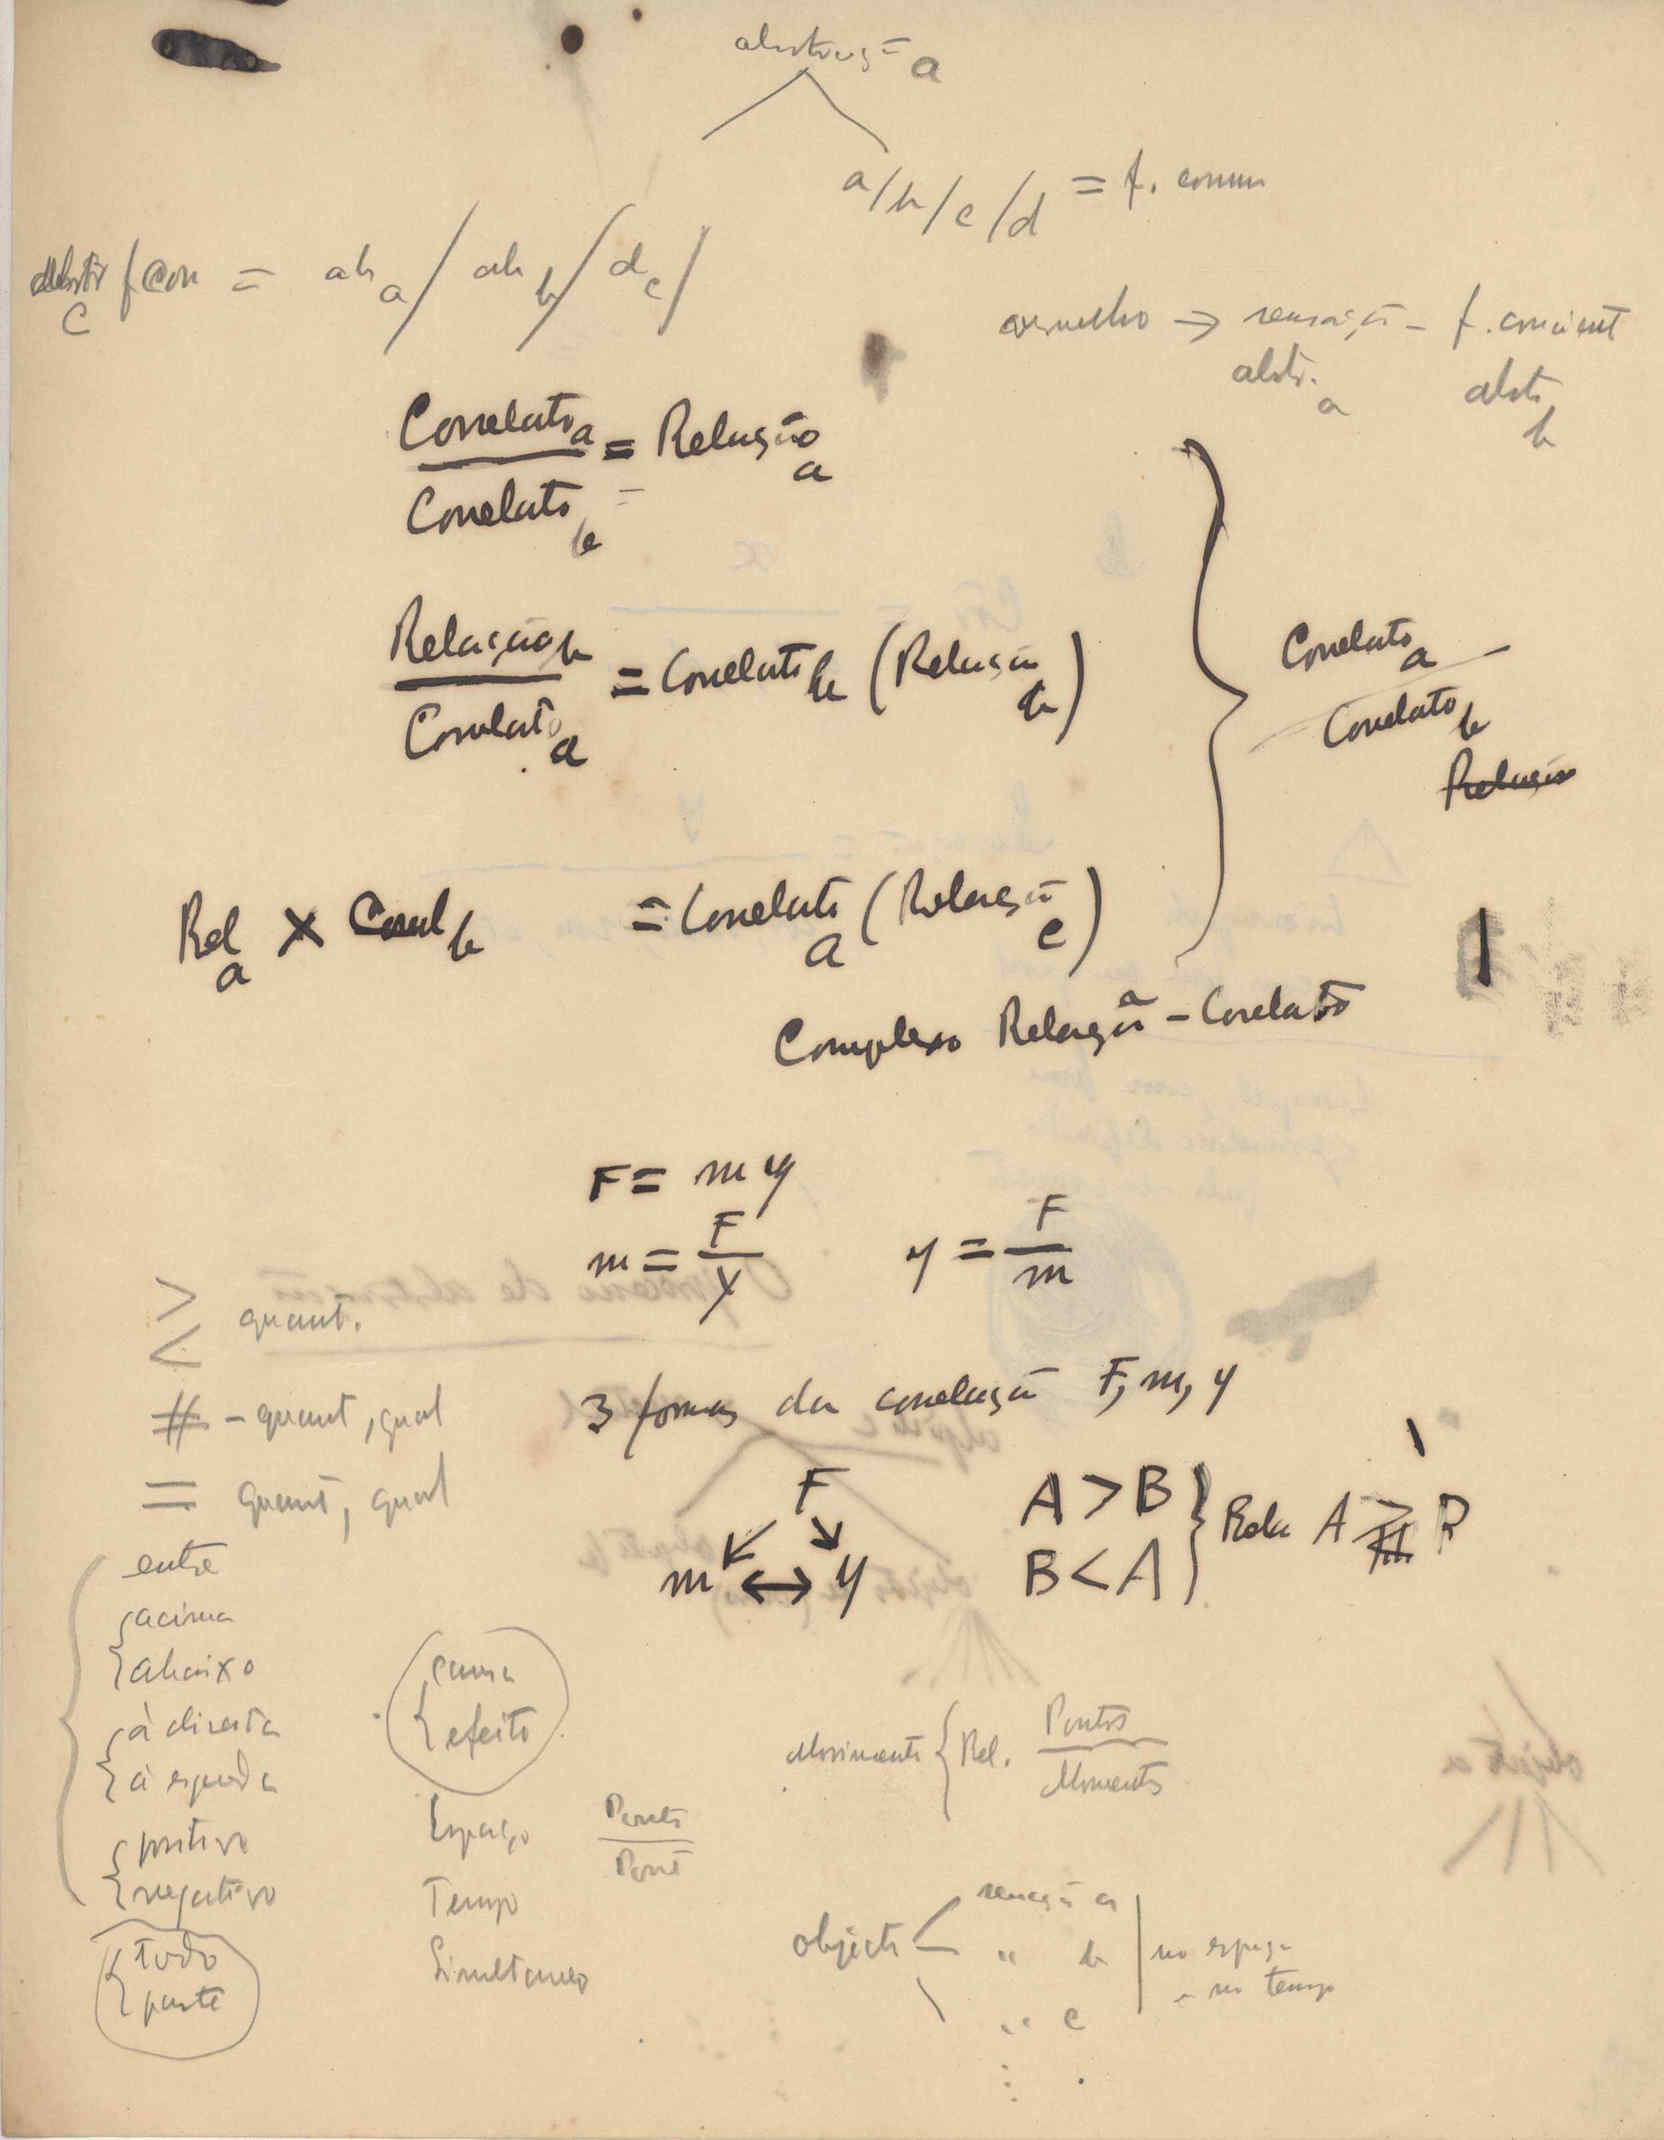 abstração a
a/b/c/d = f. comum
abstr c f con = ab a / ab b / d c /
vermelho → sensação - f. concient
abstr. a abstr b
Correlato a / Correlato b = Relação a
=
Relação b / Correlato a = Correlato b (Relação b)
Correlato a / Correlato b
Relação
Rel a × Correl b = Correlato a (Relação c)
Complexo Relação a - Correlato
F = m y
m = F / y    y = F / m
>
< quant.
# - quant, qual
= quant, qual
3 formas da correlação F, m, y
F
m ↔ y
A > B
B < A
Rela A
entre
acima
abaixo
à direita
à esquerda
positivo
negativo
todo
parte
causa
efeito
Espaço Ponto / Ponto
Tempo
Simultaneo
Movimento { Rel. Pontos / Momentos
objecto sensação a
" b no espaço
no tempo
" c